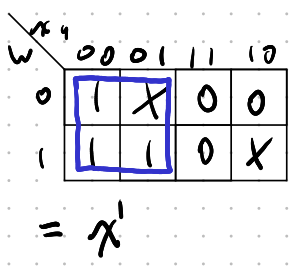 x y
w 00 01 11 10
0 1 X 0 0
1 1 1 0 X
= x'